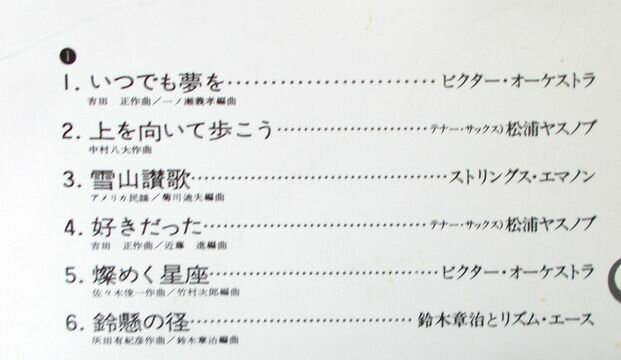 1
1. いつでも夢を……………………ビクター・オーケストラ
吉田 正作曲／一ノ瀬義孝編曲
2. 上を向いて歩こう……………………テナー・サックス)松浦ヤスノブ
中村八大作曲
3. 雪山讃歌……………………ストリングス・エマノン
アメリカ民謡／菊川迪夫編曲
4. 好きだった……………………テナー・サックス)松浦ヤスノブ
吉田 正作曲／近藤 進編曲
5. 燦めく星座……………………ビクター・オーケストラ
佐々木俊一作曲／竹村次郎編曲
6. 鈴懸の径……………………鈴木章治とリズム・エース
灰田有紀彦作曲／鈴木章治編曲